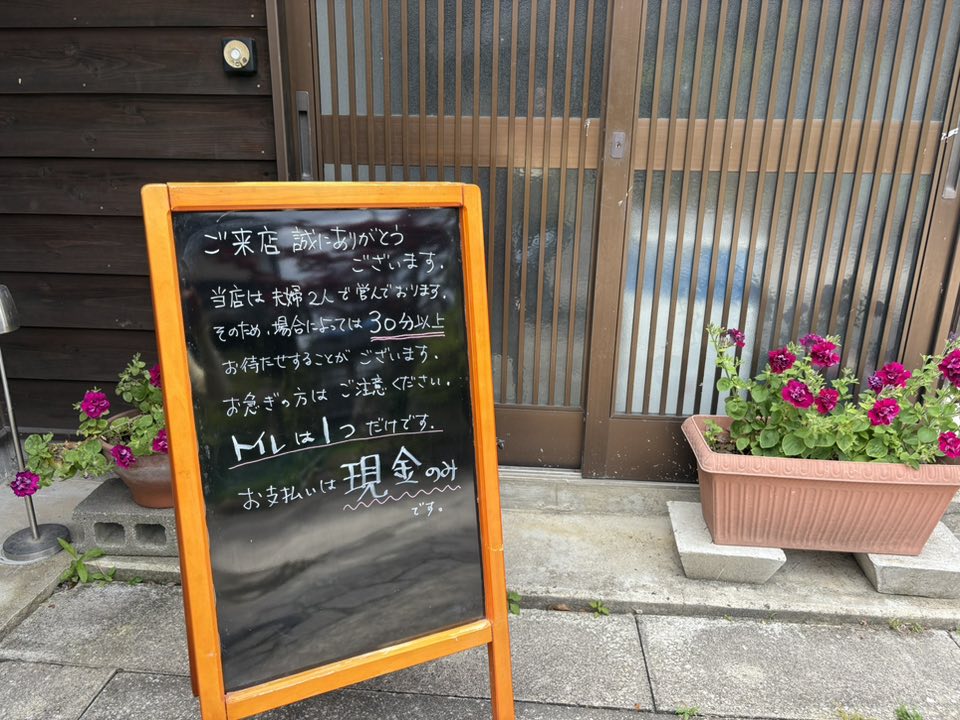 ご来店 誠にありがとう
ございます.
当店は 夫婦2人で営んでおります.
そのため、場合によっては 30分以上
お待たせすることが ございます.
お急ぎの方は ご注意ください.
トイレは1つだけです.
お支払いは 現金のみ
です。